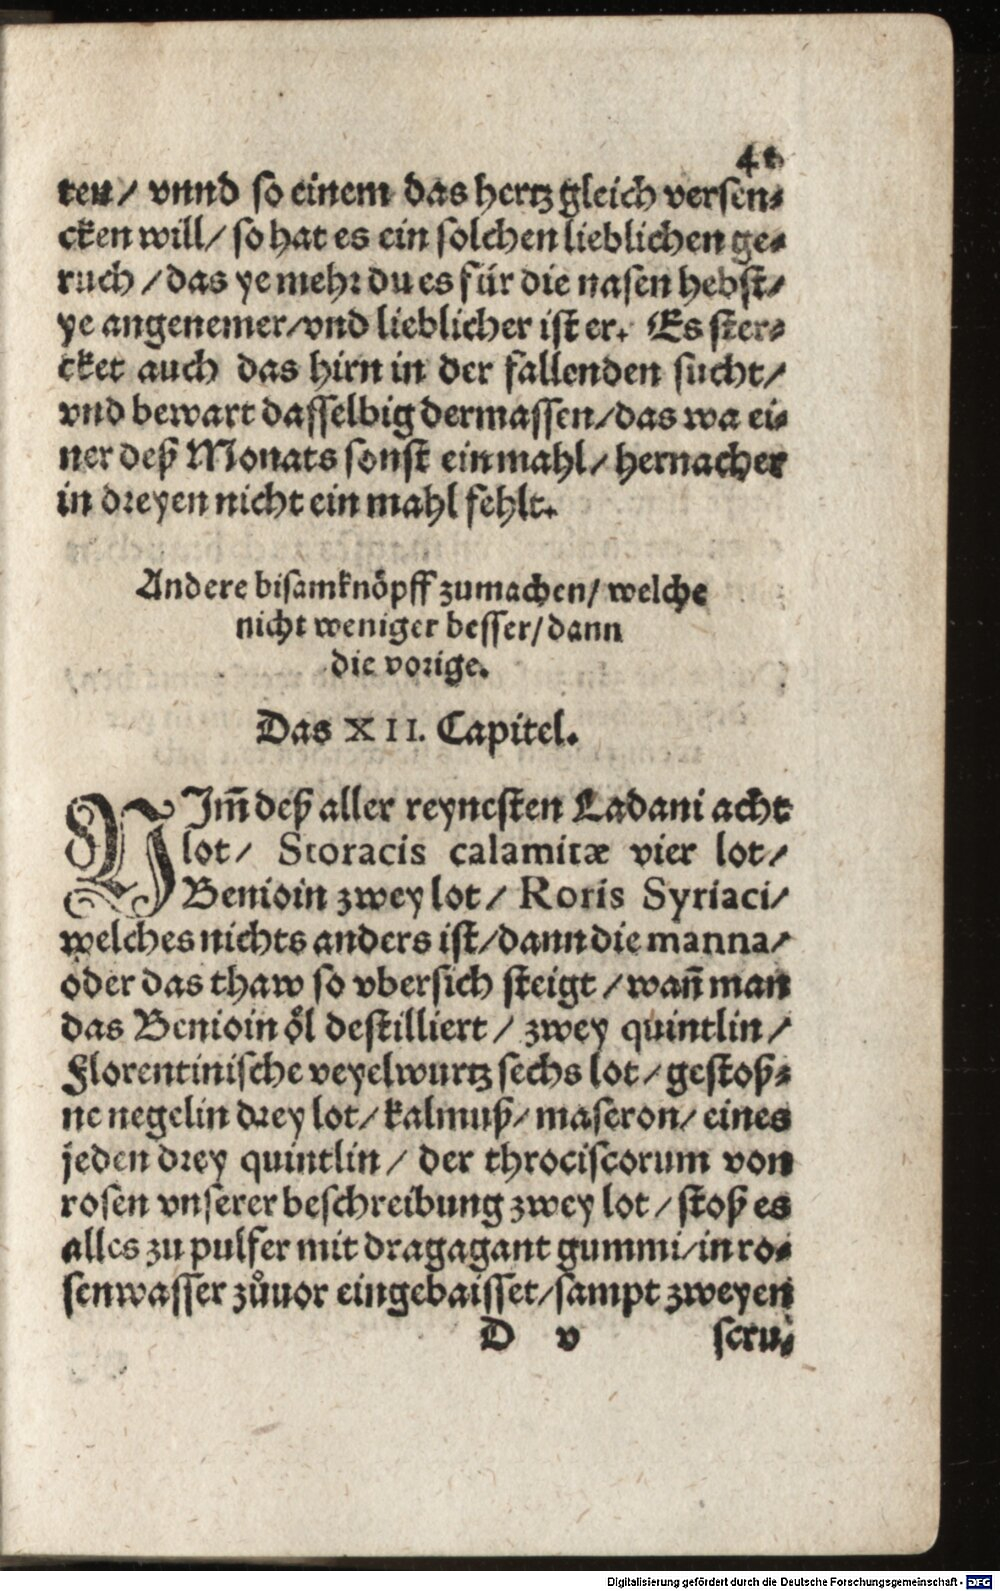 41
ten/ vnnd so einem das hertz gleich versen-
cken will/ so hat es ein solchen lieblichen ge-
ruch/ das ye mehr du es für die nasen hebst/
ye angenemer/ vnd lieblicher ist er. Es ster-
cket auch das hirn in der fallenden sucht/
vnd bewart dasselbig dermassen/ das wa ei-
ner deß Monats sonst ein mahl/ hernacher
in dreyen nicht ein mahl fehlt.
Andere bisamknöpff zumachen/ welche
nicht weniger besser/ dann
die vorige.
Das XII. Capitel.
NIm̃ deß aller reynesten Ladani acht
lot/ Storacis calamitæ vier lot/
Benioin zwey lot/ Roris Syriaci/
welches nichts anders ist/ dann die manna/
oder das thaw so vbersich steigt/ wañ man
das Benioin öl destilliert/ zwey quintlin/
Florentinische veyelwurtz sechs lot/ gestoß-
ne negelin drey lot/ kalmuß/ maseron/ eines
jeden drey quintlin/ der throciscorum von
rosen vnserer beschreibung zwey lot/ stoß es
alles zu pulfer mit dragagant gummi/ in ro-
senwasser zůuor eingebaisset/ sampt zweyen
D v scru-
Digitalisierung gefördert durch die Deutsche Forschungsgemeinschaft - DFG